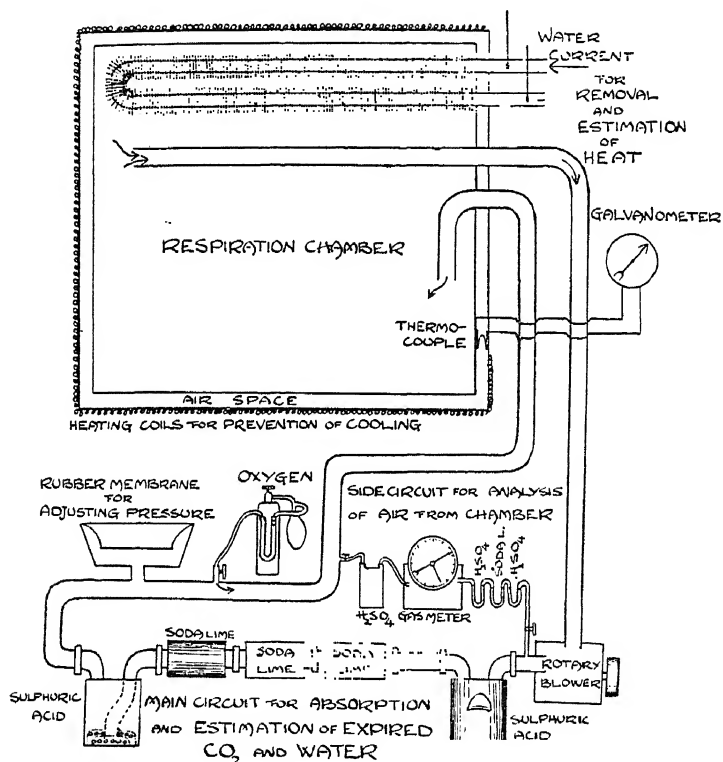 WATER
CURRENT
FOR
REMOVAL
AND
ESTIMATION
OF
HEAT
GALVANOMETER
RESPIRATION CHAMBER
THERMO-
COUPLE
AIR SPACE
HEATING COILS FOR PREVENTION OF COOLING
RUBBER MEMBRANE
FOR
ADJUSTING PRESSURE
OXYGEN
SIDE CIRCUIT FOR ANALYSIS
OF AIR FROM CHAMBER
H2SO4
SODA L.
H2SO4
H2SO4 GAS METER
SODA LIME
SODA
LIME
SODA
LIME
ROTARY
BLOWER
SULPHURIC
ACID
MAIN CIRCUIT FOR ABSORPTION
AND ESTIMATION OF EXPIRED
CO2 AND WATER
SULPHURIC
ACID